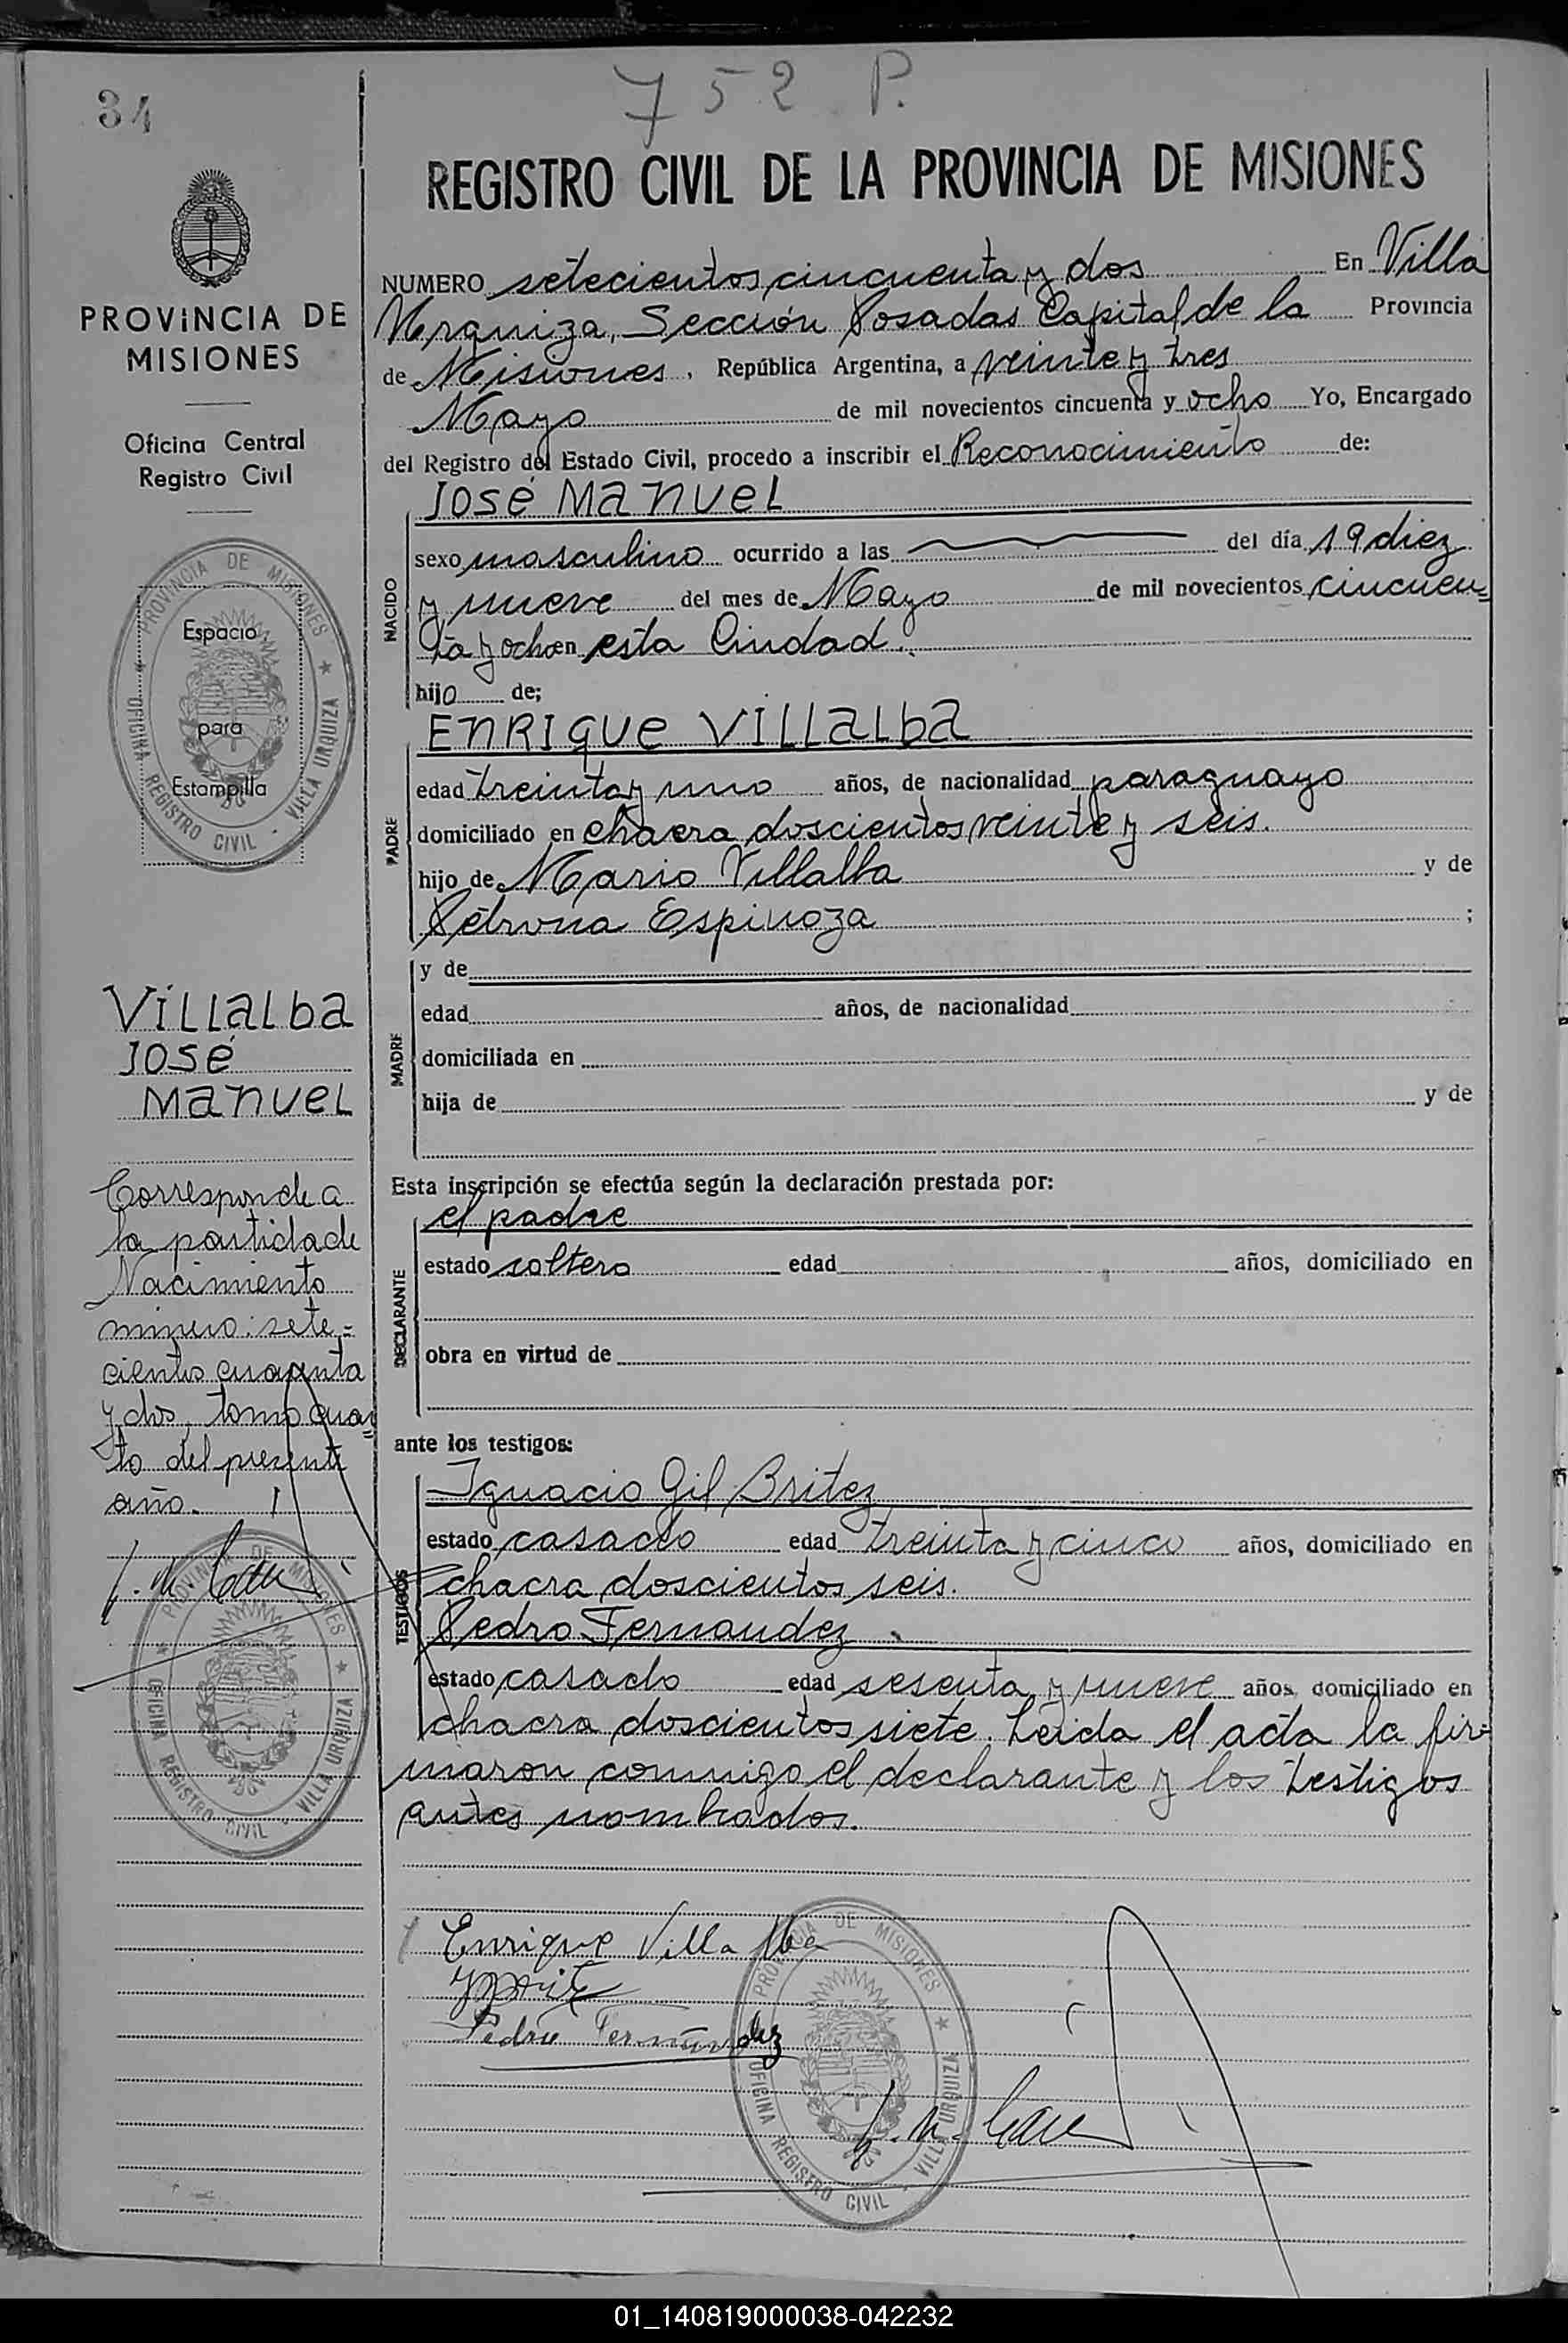 34
752 P.
REGISTRO CIVIL DE LA PROVINCIA DE MISIONES
PROVINCIA DE
MISIONES
Oficina Central
Registro Civil
PROVINCIA DE MISIONES
OFICINA REGISTRO CIVIL - VILLA URQUIZA
Espacio
para
Estampilla
VILLALBA
JOSÉ
MANUEL
Corresponde a
la partida de
Nacimiento
número: sete=
cientos cuarenta
y dos, tomo cuar=
to del presente
año.
PROVINCIA DE MISIONES
OFICINA REGISTRO CIVIL - VILLA URQUIZA
NUMERO setecientos cincuenta y dos En Villa
Urquiza, Sección Posadas Capital de la Provincia
de Misiones, República Argentina, a veinte y tres
Mayo de mil novecientos cincuenta y ocho Yo, Encargado
del Registro del Estado Civil, procedo a inscribir el Reconocimiento de:
NACIDO
JOSÉ MANUEL
sexo masculino ocurrido a las del día 19 diez
y nueve del mes de Mayo de mil novecientos cincuen=
ta y ocho en esta Ciudad.
hijo de;
PADRE
ENRIQUE VILLALBA
edad treinta y uno años, de nacionalidad paraguayo
domiciliado en chacra doscientos veinte y seis.
hijo de Mario Villalba y de
Petrona Espinoza ;
MADRE
y de
edad años, de nacionalidad
domiciliada en
hija de y de
Esta inscripción se efectúa según la declaración prestada por:
DECLARANTE
el padre
estado soltero edad años, domiciliado en
obra en virtud de
ante los testigos:
TESTIGOS
Ignacio Gil Britez
estado casado edad treinta y cinco años, domiciliado en
chacra doscientos seis.
Pedro Fernandez
estado casado edad sesenta y nueve años, domiciliado en
chacra doscientos siete. Leida el acta la fir=
maron conmigo el declarante y los testigos
antes nombrados.
Enrique Villalba
Pedro Fernández
PROVINCIA DE MISIONES
OFICINA REGISTRO CIVIL - VILLA URQUIZA
01_140819000038-042232